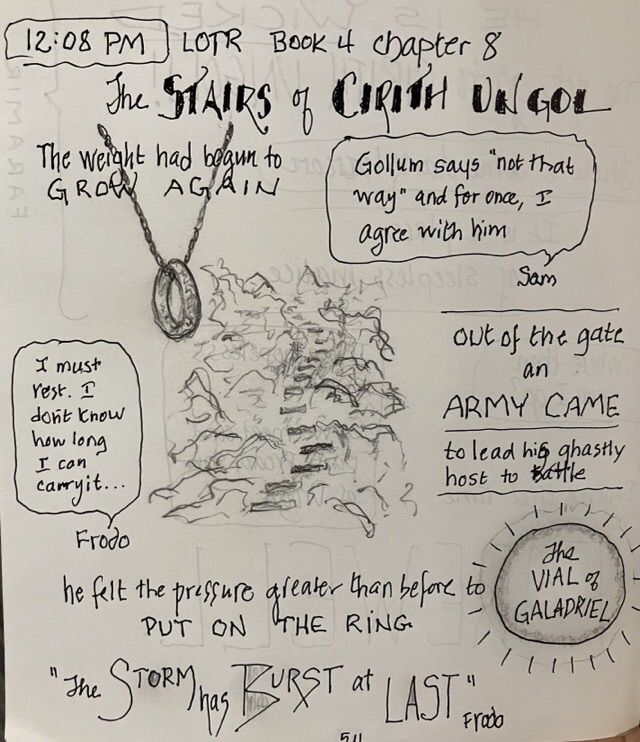 12:08 PM LOTR Book 4 chapter 8
The STAIRS of CIRITH UNGOL
The weight had begun to
GROW AGAIN
Gollum says "not that
way" and for once, I
agree with him
Sam
out of the gate
an
ARMY CAME
to lead his ghastly
host to battle
I must
rest. I
don't know
how long
I can
carry it...
Frodo
The
VIAL of
GALADRIEL
he felt the pressure greater than before to
PUT ON THE RING
"The STORM has BURST at LAST"
Frodo